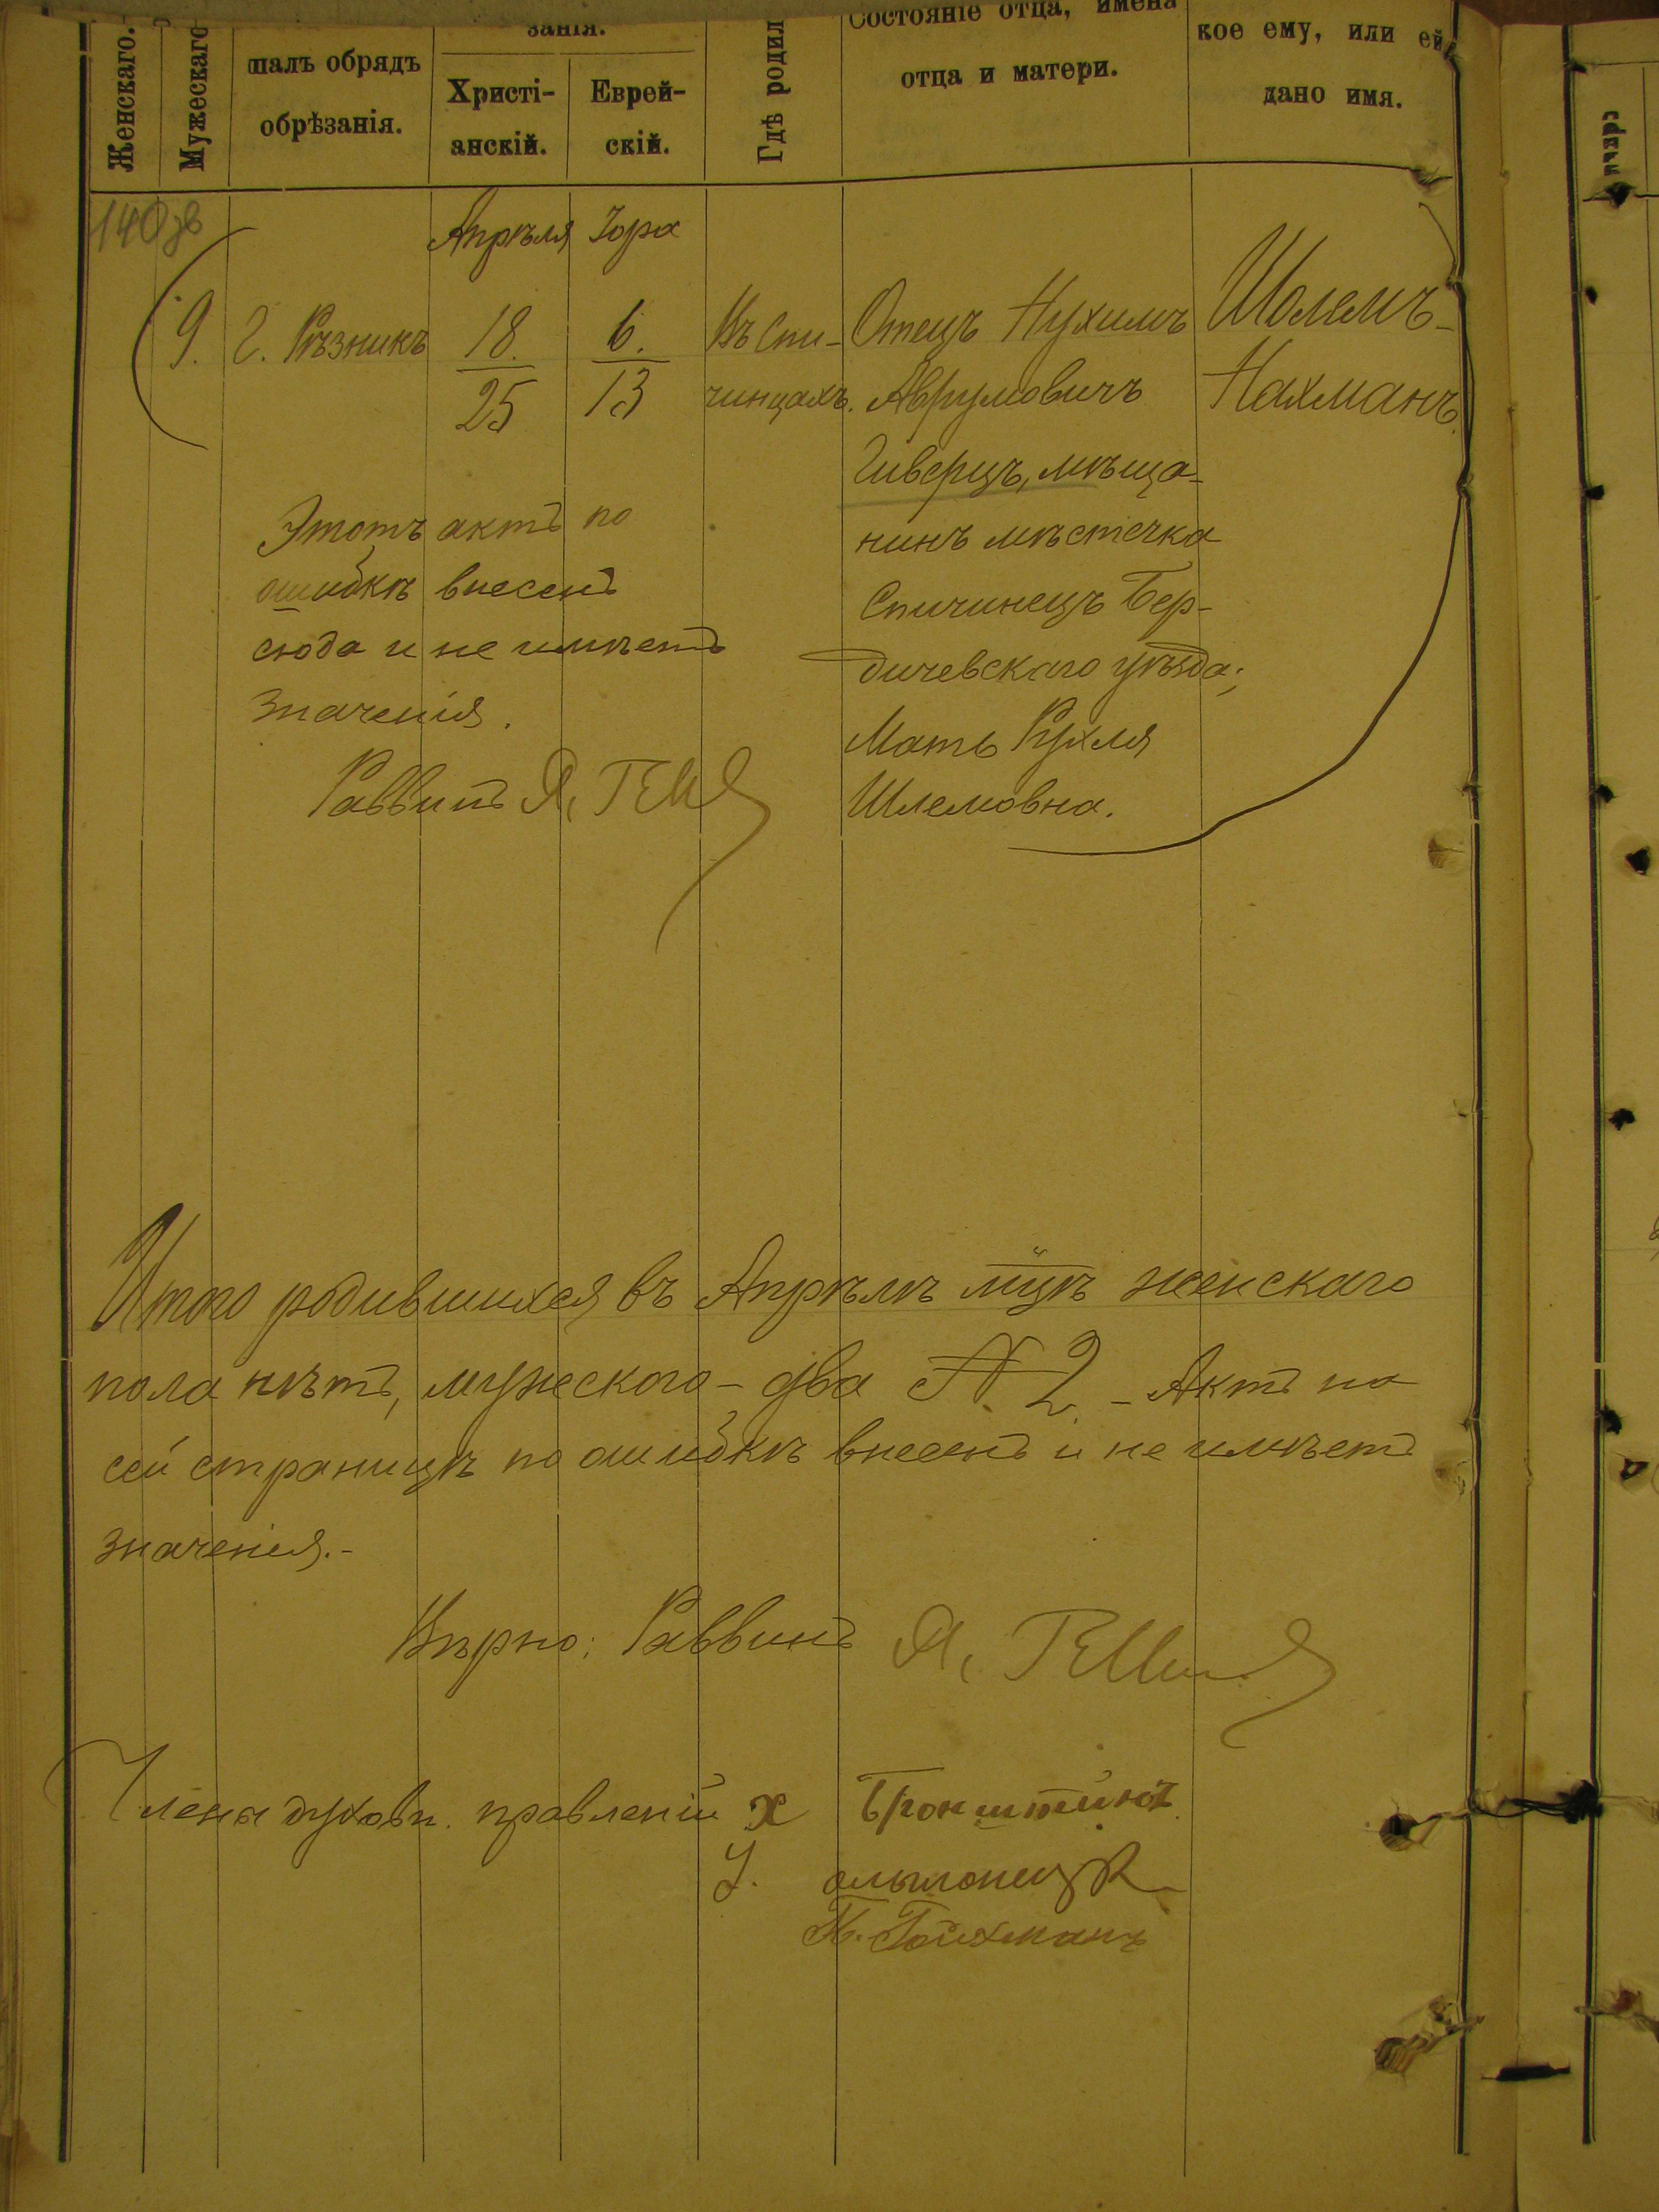 Женскаго.
Мужескаго
шалъ обрядъ
обрѣзанія.
занія.
Христі-
анскій.
Еврей-
скій.
Гдѣ родил
Состояніе отца, имена
отца и матери.
кое ему, или ей
дано имя.
140 зв
Апрѣля
9.
Г. Рѣзникъ
18.
25
6.
13
Въ Спи-
чинцахъ.
Отецъ Нухимъ
Аврумовичъ
Гиверцъ, мѣща-
нинъ мѣстечка
Спичинецъ Бер-
дичевскаго уѣзда;
Мать Рухля
Шлемовна.
Шолемъ-
Нахманъ.
Этотъ актъ по
ошибкѣ внесенъ
сюда и не имѣетъ
значенія.
Раввинъ Я.
Итого родившихся въ Апрѣлѣ мцѣ женскаго
пола нѣтъ, мужеского - два № 2. - Актъ на
сей страницѣ по ошибкѣ внесенъ и не имѣетъ
значенія.-
Вѣрно: Раввинъ Я.
Члены духовн. правленій Х Бронштейнъ
П. Гойхманъ